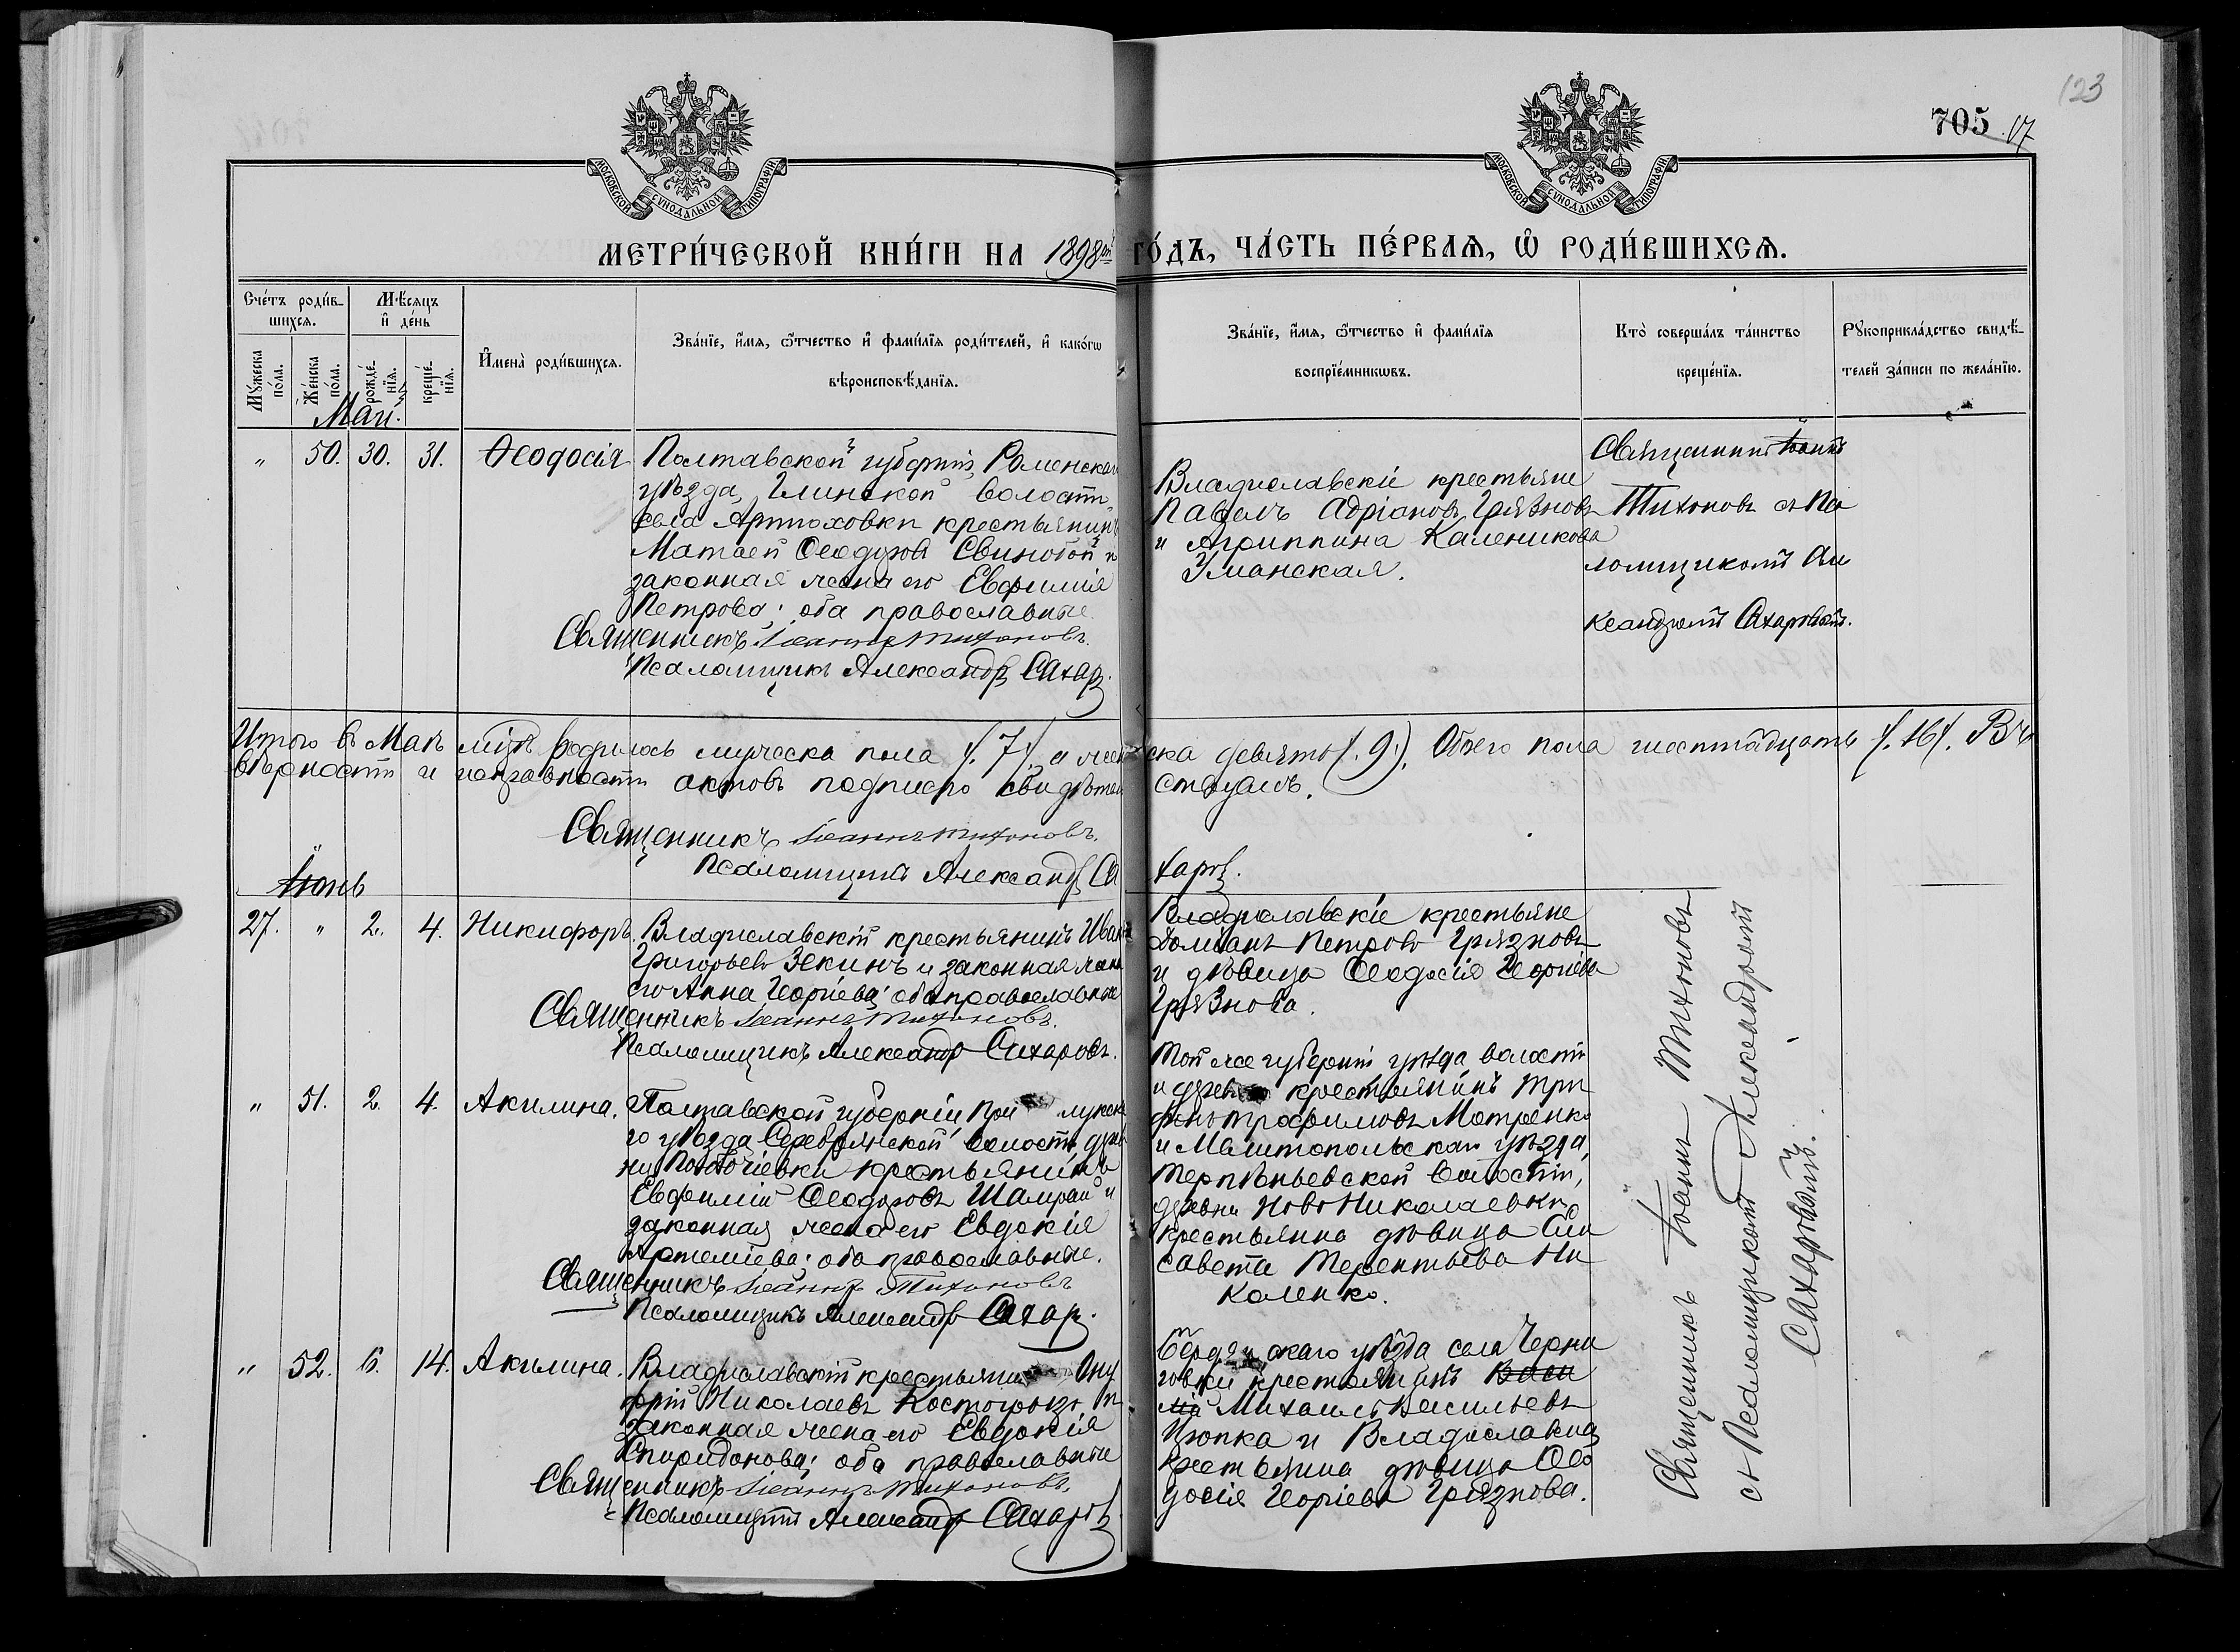 123
705 . 17
МОСКОВСКОЙ СУНОДАЛЬНОЙ ТИПОГРАФІИ
МОСКОВСКОЙ СУНОДАЛЬНОЙ ТИПОГРАФІИ
МЕТРИ́ЧЕСКОЙ КНИ́ГИ НА 1898й ГО́ДЪ, ЧА́СТЬ ПЕ́РВАѦ, Ѡ҆ РОДИ́ВШИХСѦ.
Сче́тъ роди́в-
шихсѧ.
Мѣ́сѧцъ
и҆ де́нь
Мꙋ́жеска
по́ла.
Же́нска
по́ла.
рожде́-
нїѧ.
креще́-
нїѧ.
И҆мена̀ роди́вшихсѧ.
Зва́нїе, и҆́мѧ, ѻ҆́тчество и҆ фами́лїѧ роди́телей, и҆ како́гѡ
вѣроисповѣ́данїѧ.
Зва́нїе, и҆́мѧ, ѻ҆́тчество и҆ фами́лїѧ
воспрїе́мникѡвъ.
Кто̀ соверша́лъ та́инство
креще́нїѧ.
Рꙋкоприкла́дство свидѣ́-
телей за́писи по жела́нїю.
Май.
" 50. 30. 31. Ѳеодосія
Полтавской губерніи, Роменскаго
уѣзда, Глинской волости,
села Артюховки крестьянинъ
Матѳей Ѳеодоровъ Свинобой и
законная жена его Евфимія
Петрова; оба православные.
Священникъ Іоаннъ Тихоновъ.
Псаломщикъ Александръ Сахар.
Владиславскіе крестьяне
Павелъ Адріановъ Грязновъ
и Агриппина Каленикова
Уманская.
Священникъ Іоаннъ
Тихоновъ съ Пса
ломщикомъ Але
ксандромъ Сахаровымъ.
Итого въ Маѣ мцѣ родилось мужеска пола (.7.), а женска девять (.9.). Обоего пола шестнадцать (.16.). Въ
вѣрности и исправности актовъ подписью свидѣтельствуемъ.
Священникъ Іоаннъ Тихоновъ.
Псаломщикъ Александръ Сахаровъ.
Іюнь
27. " 2. 4. Никифоръ.
Владиславскій крестьянинъ Иванъ
Григорьевъ Зекинъ и законная жена
его Анна Георгіева; оба православные
Священникъ Іоаннъ Тихоновъ.
Псаломщикъ Александръ Сахаровъ.
Владиславскіе крестьяне
Петровъ Грязновъ
и дѣвица Ѳеодосія Георгіева
Грязнова.
" 51. 2. 4. Акилина.
Полтавской губерніи При лукска
го уѣзда Серебрянской волости, дерев
ни крестьянинъ
Евфимій Ѳеодоровъ Шамрай и
законная жена его Евдокія
Артеміева; оба православные.
Священникъ Іоаннъ Тихоновъ
Псаломщикъ Александръ Сахар.
Той же губерніи уѣзда волости
и дерев крестьянинъ Три
фонъ Трофимовъ Мотренко
и Мелитопольскаго уѣзда,
Терпѣньевской волости,
деревни НовоНиколаевки
крестьянка дѣвица Ели
савета Терентьева Ни
коленко.
" 52. 6. 14. Акилина.
Владиславскій крестьянинъ Ону
фрій Николаевъ Костогрызъ и
законная жена его Евдокія
Спиридонова; оба православные
Священникъ Іоаннъ Тихоновъ.
Псаломщикъ Александръ Сахаровъ
Бердянскаго уѣзда села Черни
говки крестьянинъ Васи
лій Михаилъ Васильевъ
Цюпка и Владиславская
крестьянка дѣвица Ѳео
досія Георгіева Грязнова.
Священникъ Іоаннъ Тихоновъ
съ Псаломщикомъ Александромъ
Сахаровымъ.